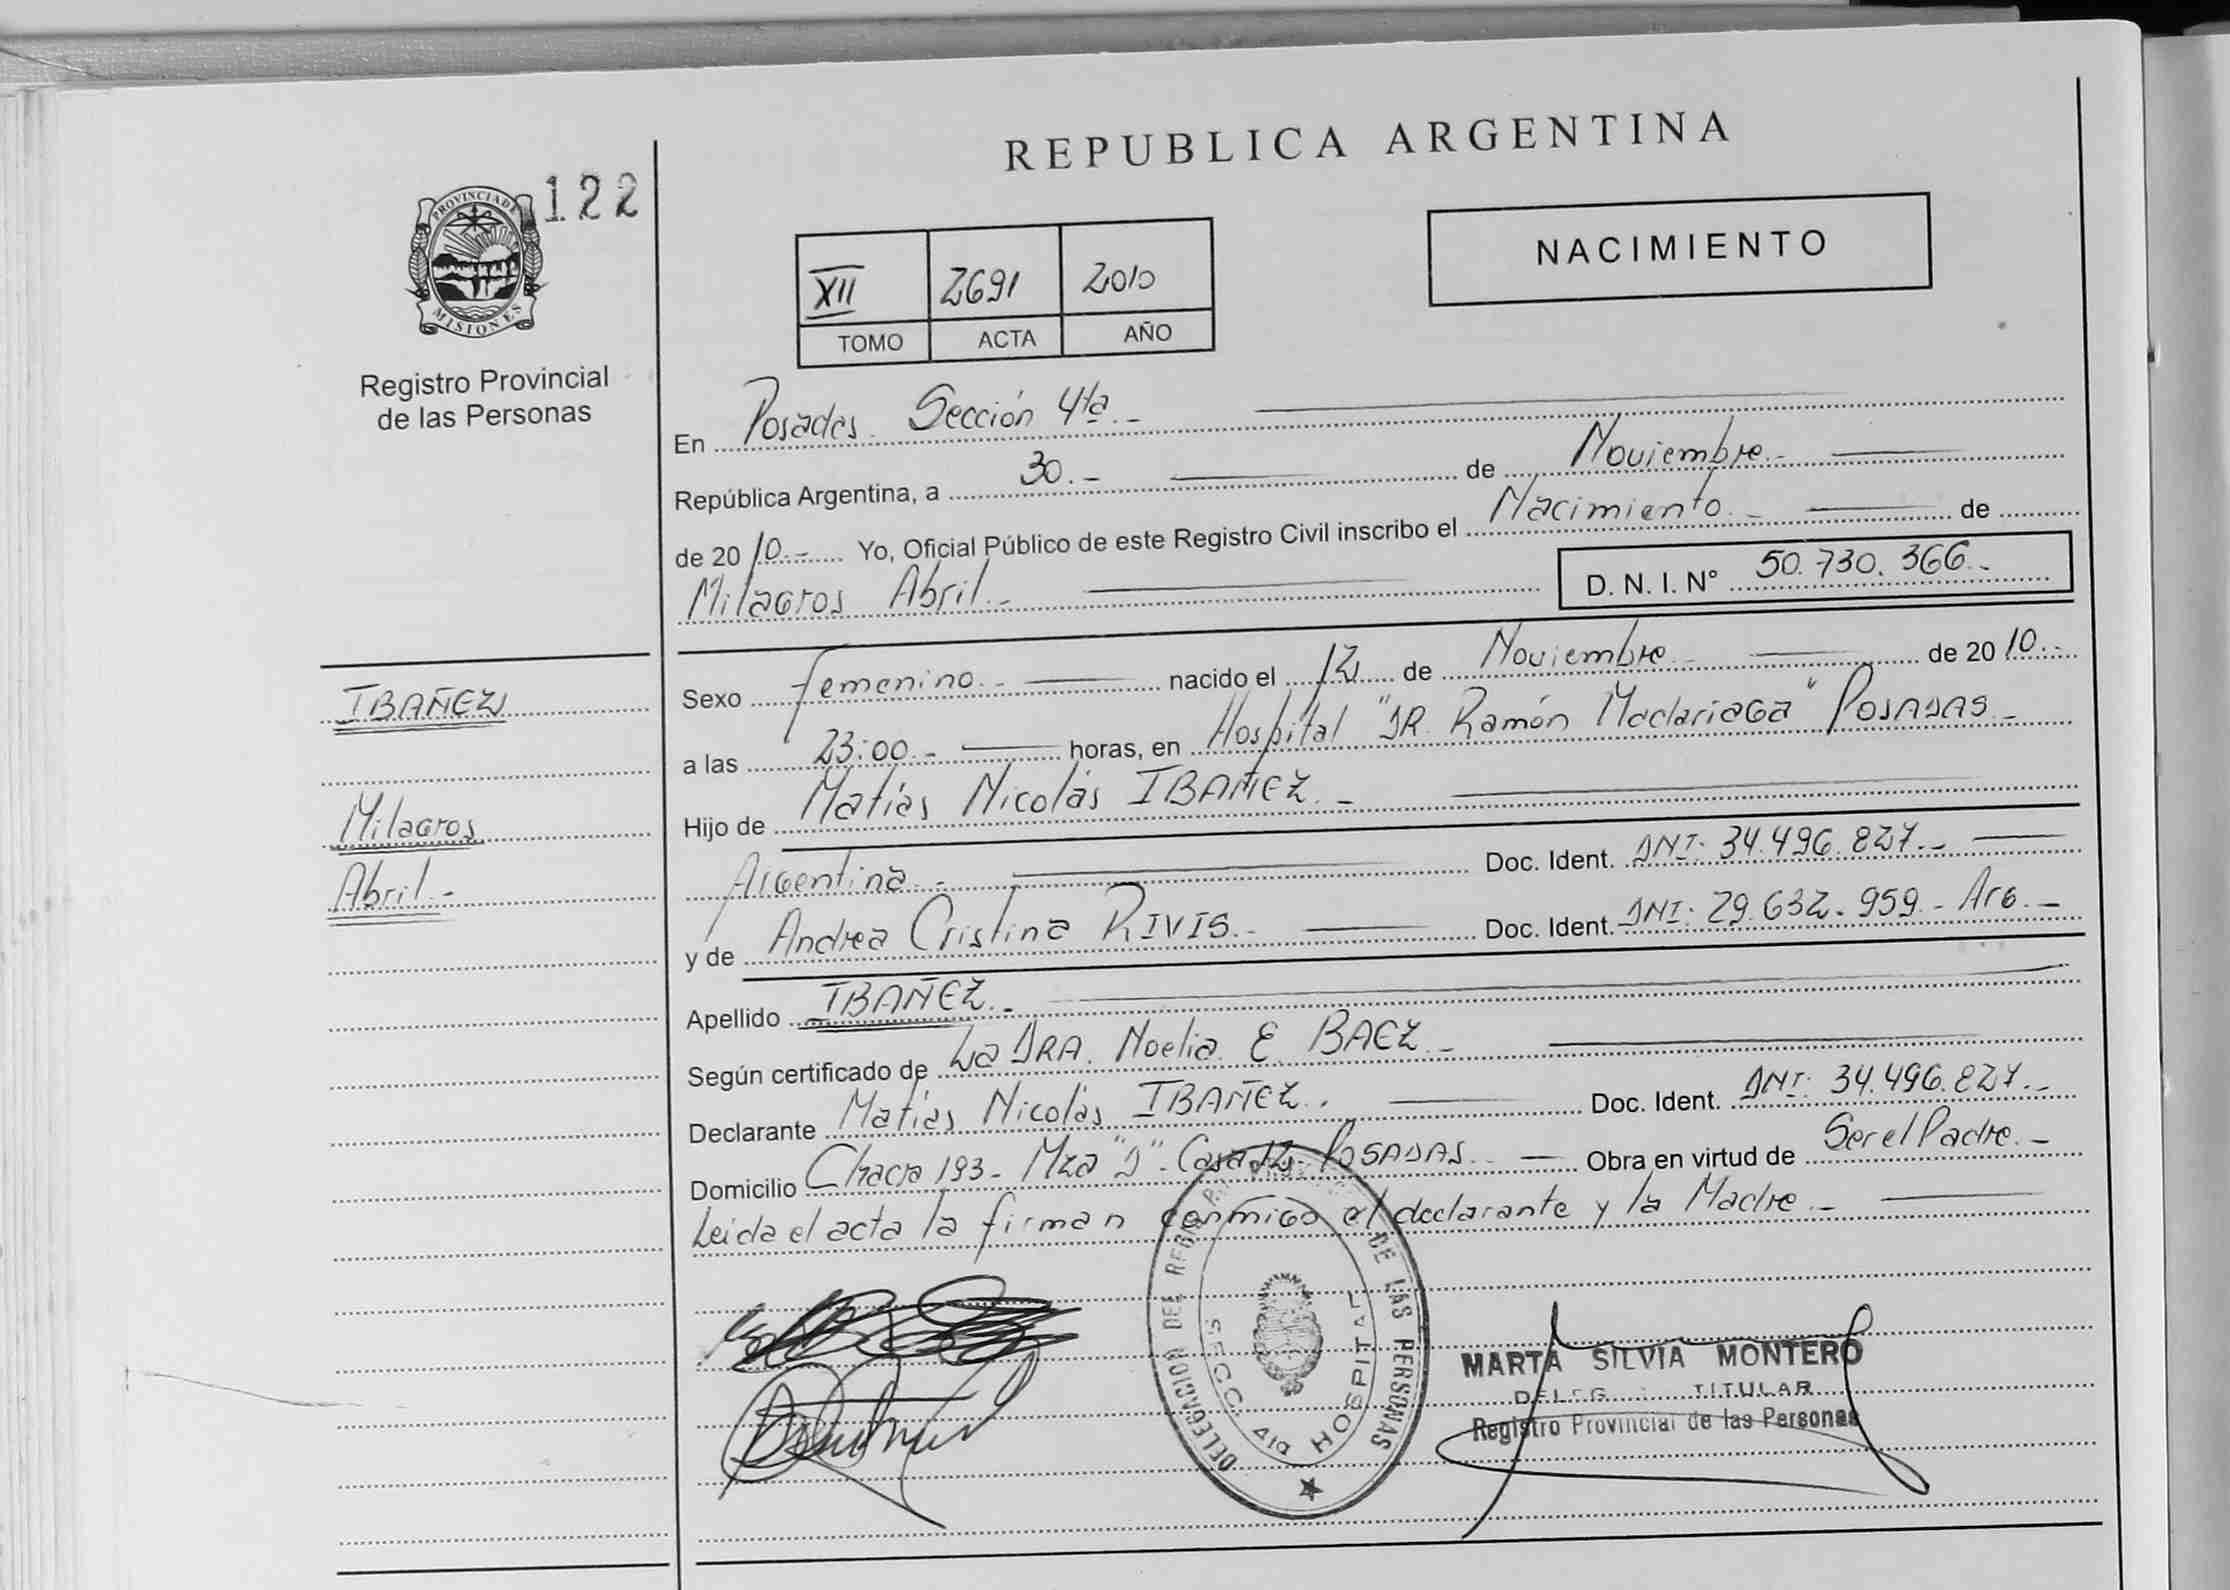 REPUBLICA ARGENTINA
122
PROVINCIA DE
MISIONES
Registro Provincial
de las Personas
NACIMIENTO
XII 2691 2010
TOMO ACTA AÑO
En Posadas. Sección 4ta.-
República Argentina, a 30.- de Noviembre.-
de 2010.- Yo, Oficial Público de este Registro Civil inscribo el Nacimiento.- de
Milagros Abril.- D. N. I. N° 50.730.366.-
Sexo femenino.- nacido el 12 de Noviembre.- de 2010.-
a las 23:00.- horas, en Hospital "DR. Ramón Madariaga" POSADAS.-
Hijo de Matías Nicolás IBAÑEZ.-
Argentina.- Doc. Ident. DNI: 34.496.827.-
y de Andrea Cristina RIVIS.- Doc. Ident. DNI: 29.632.959.- Arg.-
Apellido IBAÑEZ.-
Según certificado de La DRA. Noelia E. BAEZ.-
Declarante Matías Nicolás IBAÑEZ. Doc. Ident. DNI: 34.496.827.-
Domicilio Chacra 193- Mza "D"- Casa 12- POSADAS.- Obra en virtud de Ser el Padre.-
Leida el acta la firman conmigo el declarante y la Madre.-
IBAÑEZ
Milagros
Abril.-
DELEGACION DEL REGISTRO DE LAS PERSONAS
SECC. 4ta HOSPITAL
MARTA SILVIA MONTERO
DELEG. TITULAR
Registro Provincial de las Personas